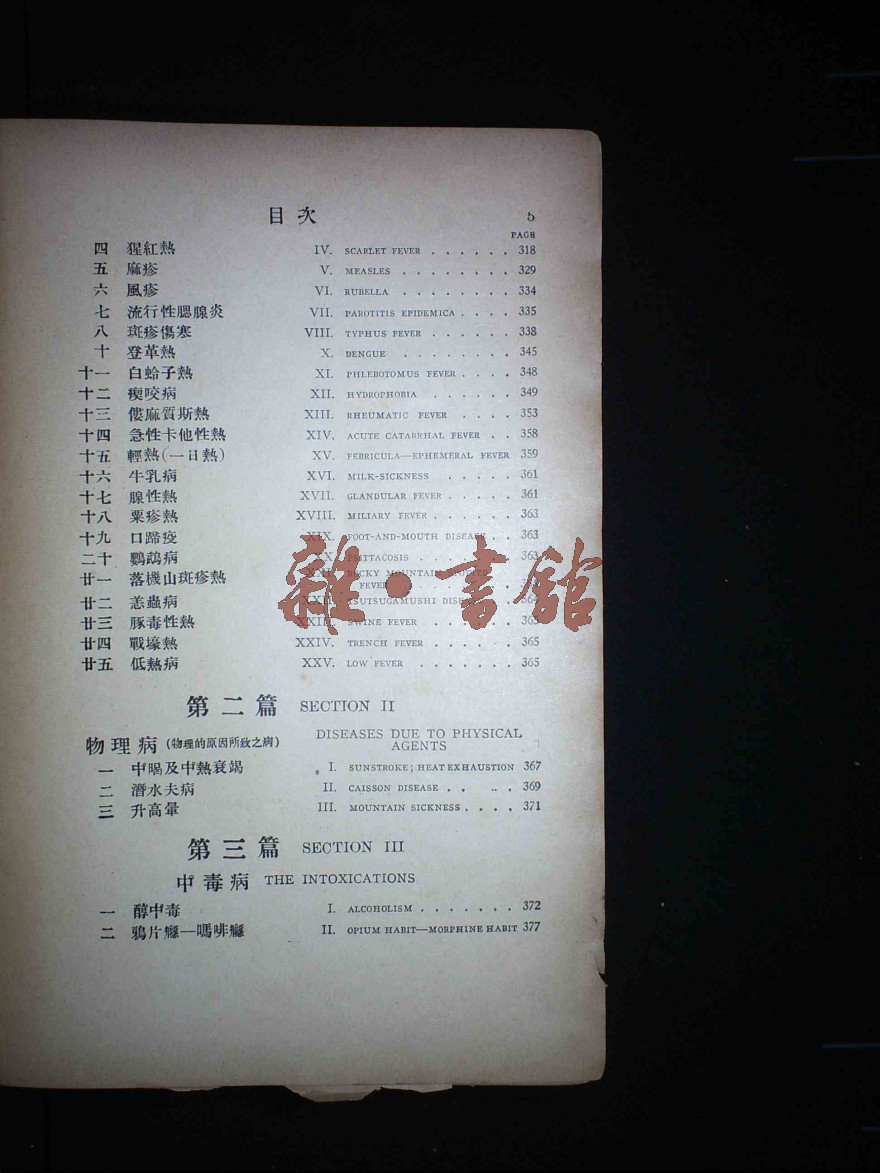 目次 5
PAGE
四 猩紅熱 IV. SCARLET FEVER . . . . . . 318
五 麻疹 V. MEASLES . . . . . . . . 329
六 風疹 VI. RUBELLA . . . . . . . . 334
七 流行性腮腺炎 VII. PAROTITIS EPIDEMICA . . . . 335
八 斑疹傷寒 VIII. TYPHUS FEVER . . . . . . 338
十 登革熱 X. DENGUE . . . . . . . 345
十一 白蛉子熱 XI. PHLEBOTOMUS FEVER . . . . 348
十二 瘈咬病 XII. HYDROPHOBIA . . . . . . 349
十三 僂麻質斯熱 XIII. RHEUMATIC FEVER . . . . 353
十四 急性卡他性熱 XIV. ACUTE CATARRHAL FEVER . . 358
十五 輕熱(一日熱) XV. FEBRICULA—EPHEMERAL FEVER 359
十六 牛乳病 XVI. MILK-SICKNESS . . . . . 361
十七 腺性熱 XVII. GLANDULAR FEVER . . . . . 361
十八 粟疹熱 XVIII. MILIARY FEVER . . . . . . 363
十九 口蹄疫 XIX. FOOT-AND-MOUTH DISEASE . . 363
二十 鸚鵡病 XX. PSITTACOSIS . . . . . . . 363
廿一 落機山斑疹熱 XXI. ROCKY MOUNTAIN
FEVER
廿二 恙蟲病 XXII. TSUTSUGAMUSHI DISEASE
廿三 豚毒性熱 XXIII. SWINE FEVER . . . . . . 365
廿四 戰壕熱 XXIV. TRENCH FEVER . . . . . . 365
廿五 低熱病 XXV. LOW FEVER . . . . . . . 365
雜·書館
第二篇 SECTION II
物理病 (物理的原因所致之病) DISEASES DUE TO PHYSICAL
AGENTS
一 中暍及中熱衰竭 I. SUNSTROKE; HEAT EXHAUSTION 367
二 潛水夫病 II. CAISSON DISEASE . . . . . 369
三 升高暈 III. MOUNTAIN SICKNESS . . . . 371
第三篇 SECTION III
中毒病 THE INTOXICATIONS
一 醇中毒 I. ALCOHOLISM . . . . . . . 372
二 鴉片癮—嗎啡癮 II. OPIUM HABIT—MORPHINE HABIT 377